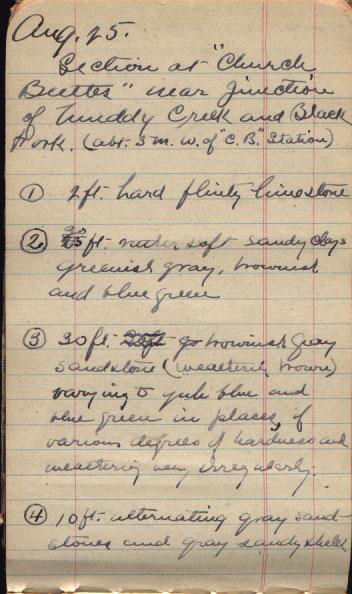 Aug. 25.
Section at "Church
Buttes" near junction
of Muddy Creek and Black
Fork. (abt. 3 m. W. of "C.B." Station)
① 2 ft. hard flinty limestone
② 20 ft. rather soft sandy clays
greenish gray, brownish
and blue green
③ 30 ft. brownish gray
sandstone (weathering brown)
varying to pale blue and
blue green in places, of
various degrees of hardness and
weathering very irregularly.
④ 10 ft. alternating gray sand-
stones and gray sandy shales